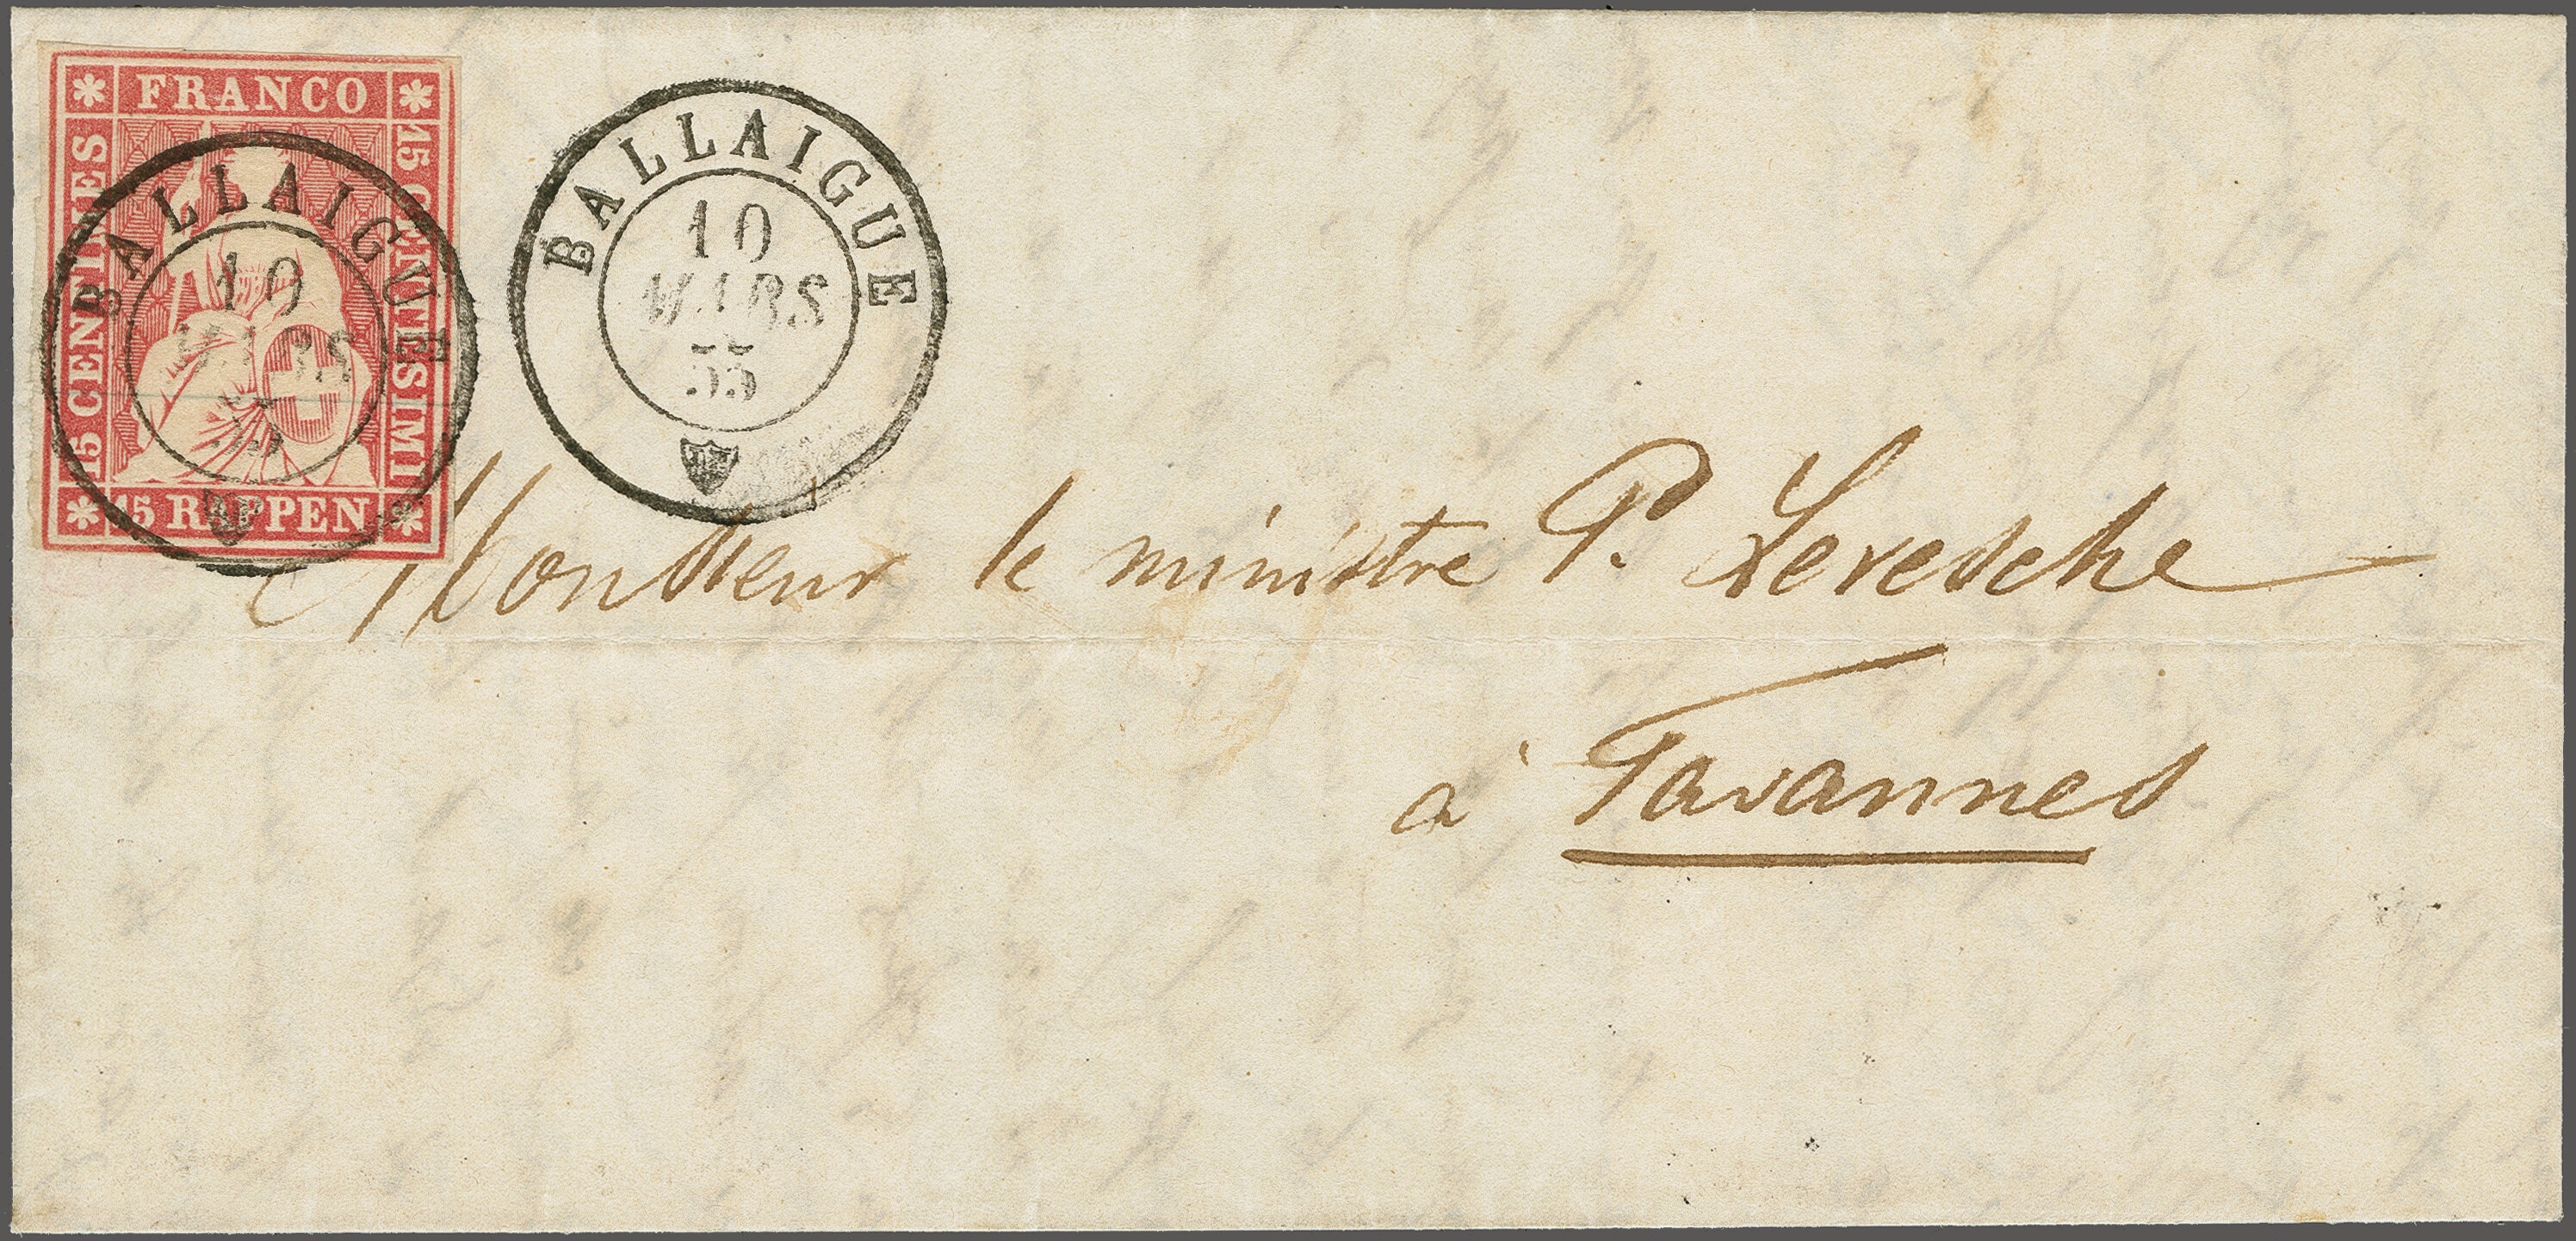 FRANCO
15 CENTIMES
15 CENTESIMI
15 RAPPEN
BALLAIGUE
10
MARS
55
BALLAIGUE
10
MARS
55
Monsieur le ministre P. Leresche
à Tavannes